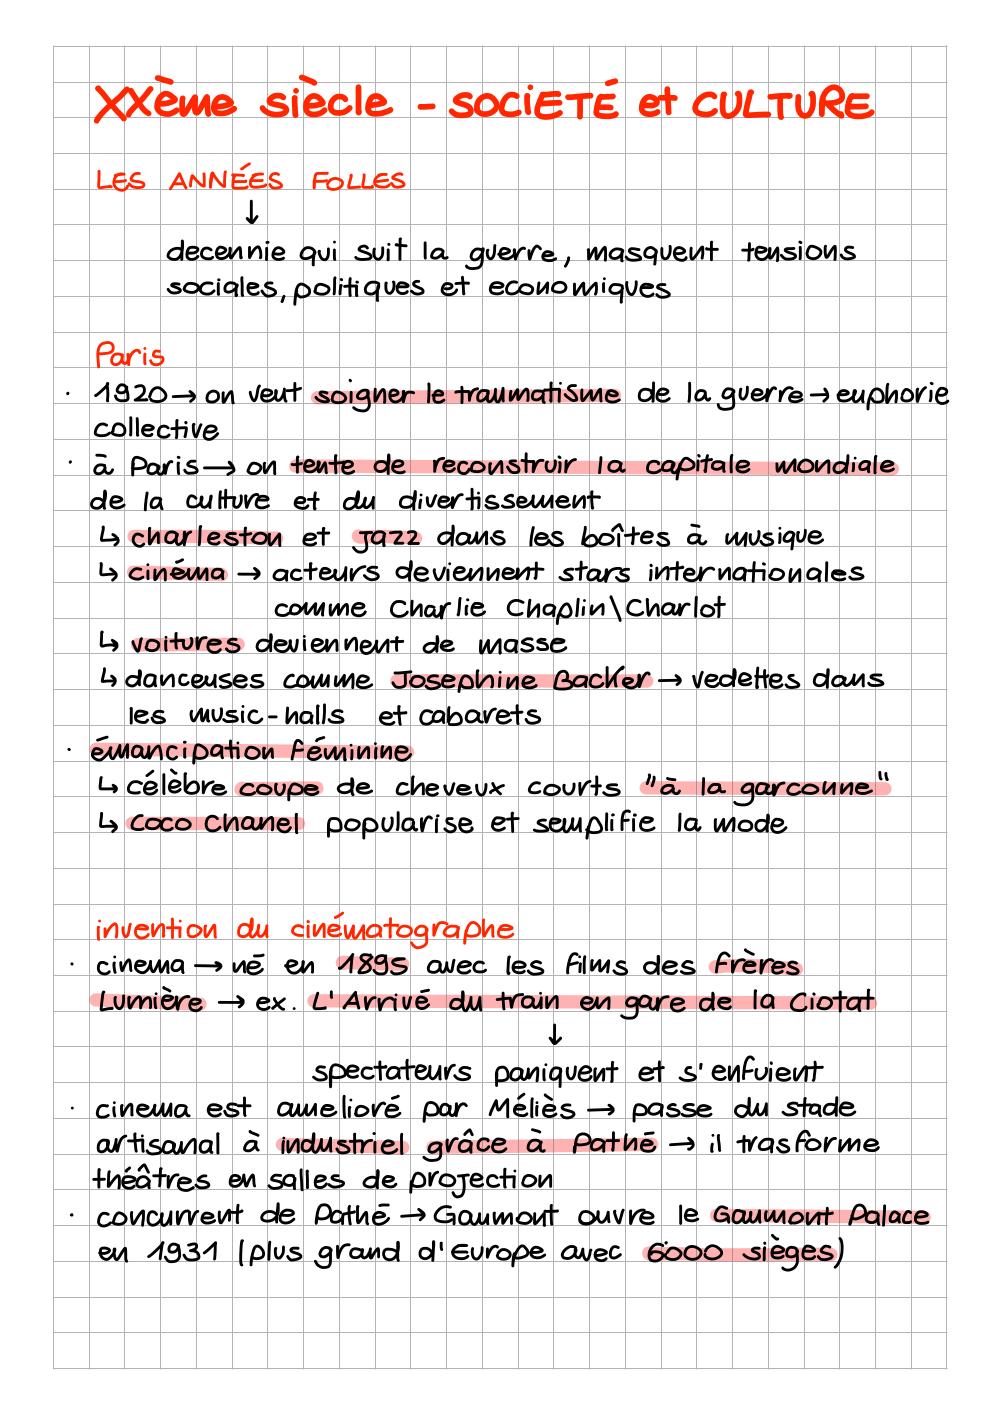 XXème siècle - SOCiETÉ et CULTURE
LES ANNÉES FOLLES
↓
decennie qui suit la guerre, masquent tensions
sociales, politiques et economiques
Paris
· 1920 → on veut soigner le traumatisme de la guerre → euphorie
collective
· à Paris → on tente de reconstruir la capitale mondiale
de la culture et du divertissement
↳ charleston et jazz dans les boîtes à musique
↳ cinéma → acteurs deviennent stars internationales
comme Charlie Chaplin\Charlot
↳ voitures deviennent de masse
↳ danceuses comme Josephine Backer → vedettes dans
les music-halls et cabarets
· émancipation féminine
↳ célèbre coupe de cheveux courts "à la garconne"
↳ Coco Chanel popularise et semplifie la mode
invention du cinématographe
· cinema → né en 1895 avec les films des frères
Lumière → ex. L'Arrivé du train en gare de la Ciotat
↓
spectateurs paniquent et s'enfuient
· cinema est amelioré par Méliès → passe du stade
artisanal à industriel grâce à Pathé → il trasforme
théâtres en salles de projection
· concurrent de Pathé → Gaumont ouvre le Gaumont Palace
en 1931 (plus grand d'Europe avec 6000 sièges)